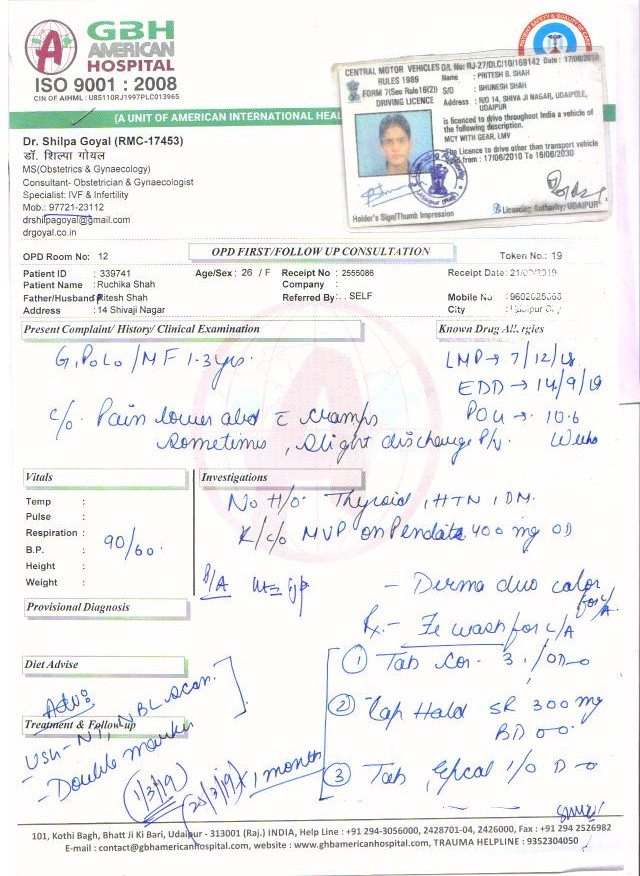 GBH
AMERICAN
HOSPITAL
ISO 9001 : 2008
CIN OF AIHML : U85110RJ1997PLC013965
PATIENT SAFETY & QUALITY OF CARE
(A UNIT OF AMERICAN INTERNATIONAL HEAL
CENTRAL MOTOR VEHICLES D/L No: RJ-27/DLC/10/169142 Date : 17/06/2010
RULES 1989
FORM 7(See Rule16(2))
DRIVING LICENCE
Name : PRITESH B. SHAH
S/O : BHUNESH SHAH
Address : R/O 14, SHIVA JI NAGAR, UDAIPOLE,
UDAIPUR
is licenced to drive throughout India a vehicle of
the following description.
MCY WITH GEAR, LMV
The Licence to drive other than transport vehicle
from : 17/06/2010 To 16/06/2030
Holder's Sign/Thumb Impression
Licencing Authority: UDAIPUR
Dr. Shilpa Goyal (RMC-17453)
डॉ. शिल्पा गोयल
MS(Obstetrics & Gynaecology)
Consultant- Obstetrician & Gynaecologist
Specialist: IVF & Infertility
Mob.: 97721-23112
drshilpagoyal@gmail.com
drgoyal.co.in
OPD FIRST/FOLLOW UP CONSULTATION
OPD Room No: 12
Token No.: 19
Patient ID : 339741 Age/Sex : 26 / F Receipt No : 2555086 Receipt Date: 21/02/2019
Patient Name : Ruchika Shah Company :
Father/Husband Pritesh Shah Referred By: . SELF Mobile No
Address : 14 Shivaji Nagar City
Present Complaint/ History/ Clinical Examination
Known Drug Allergies
G1P0L0 / MF 1.3 yrs.
LMP → 7/12/18
EDD → 14/9/19
POG → 10.6
Weeks
c/o Pain lower abd c̄ cramps
sometimes, slight discharge P/V.
Vitals
Investigations
Temp :
Pulse :
Respiration :
B.P. :
Height :
Weight :
90/60.
No H/o Thyroid, HTN, DM.
K/c/o MVP on Pendate 400 mg OD
P/A
- Derma duo calor
for c/A.
Provisional Diagnosis
Rx - wash for c/A
Diet Advise
① Tab Cor- 3 1/OD
② Cap Hald SR 300 mg
BD
③ Tab 1/0 D
Advo
Treatment & Follow-up
USG-NT, NBL scan.
- Double marker
1/3/19
(20/3/19) × 1 month
101, Kothi Bagh, Bhatt Ji Ki Bari, Udaipur - 313001 (Raj.) INDIA, Help Line : +91 294-3056000, 2428701-04, 2426000, Fax : +91 294 2526982
E-mail : contact@gbhamericanhospital.com, website : www.gbhamericanhospital.com, TRAUMA HELPLINE : 9352304050